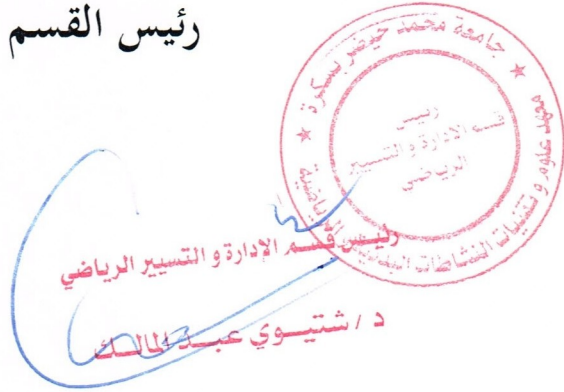 رئيس القسم
جامعة محمد خيضر بسكرة
معهد علوم و تقنيات النشاطات البدنية و الرياضية
رئيس
قسم الادارة و التسيير
الرياضي
رئيس قسم الإدارة و التسيير الرياضي
د / شتيوي عبد المالك